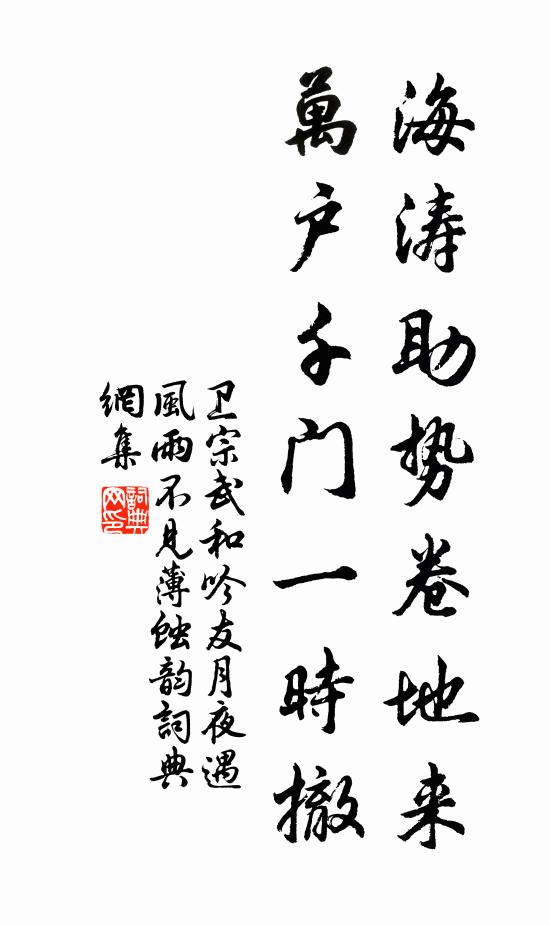 海涛助势卷地来
萬户千门一時撤
卫宗武和吟友月夜遇
風雨不見薄蚀韵詞典
網集
詞典
网印